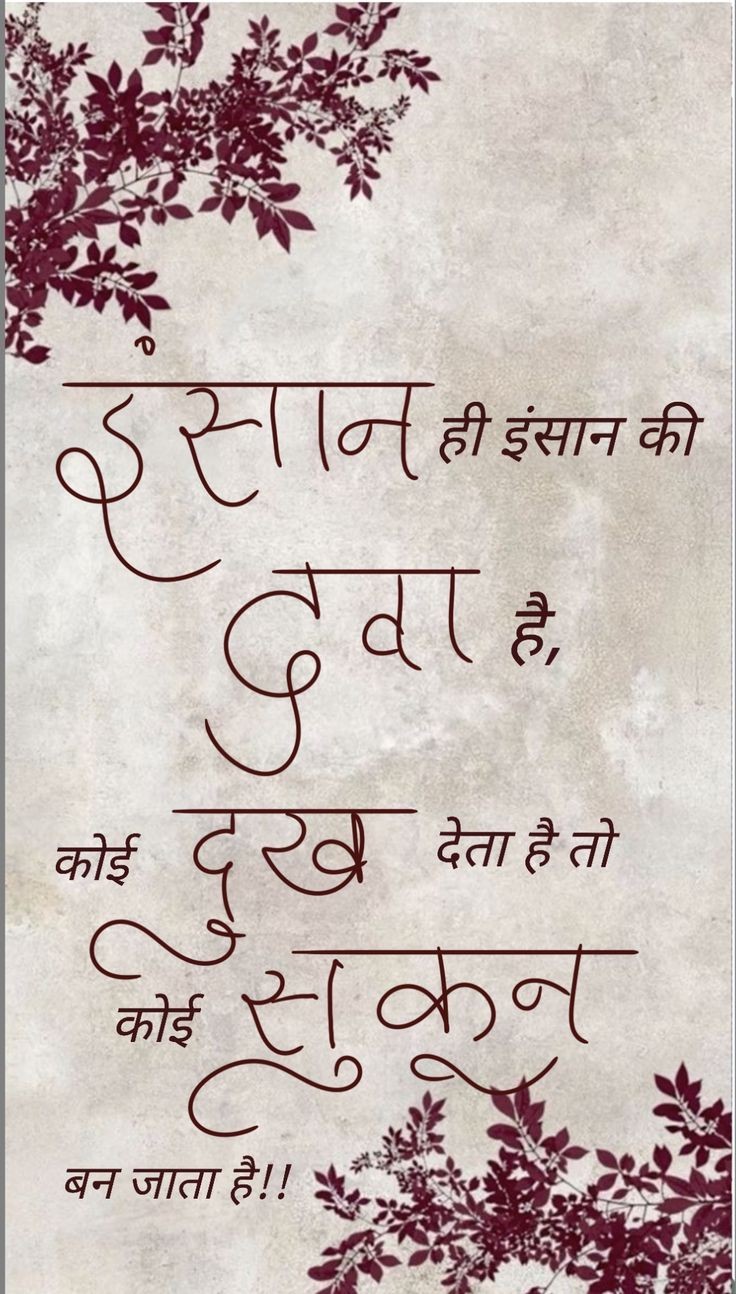 इंसान ही इंसान की
दवा है,
कोई दुख देता है तो
कोई सुकून
बन जाता है!!